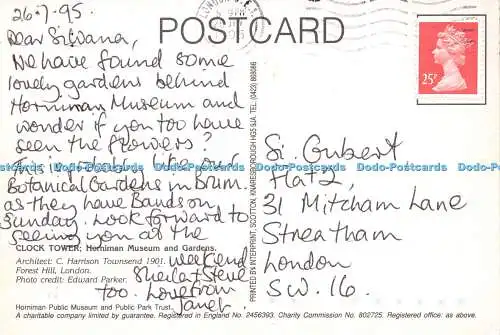 26·7·95
POSTCARD
LONDON
Dear Silvana,
We have found some
lovely gardens behind
Horniman Museum and
wonder if you too have
seen the flowers?
This is probably like our
Botanical Gardens in Brum.
as they have Bands on
Sunday. Look forward to
seeing you at the
weekend
Sheila & Steve
too. Love from
Janet
CLOCK TOWER; Horniman Museum and Gardens.
Architect: C. Harrison Townsend 1901.
Forest Hill, London.
Photo credit: Edward Parker.
Horniman Public Museum and Public Park Trust.
A charitable company limited by guarantee. Registered in England No. 2456393. Charity Commission No. 802725. Registered office: as above.
PRINTED BY INTERPRINT, SCOTTON, KNARESBOROUGH HG5 9JA. TEL: (0423) 868686
25P
Si. Gubert
Flat 2,
31 Mitcham Lane
Streatham
London
S.W. 16.
Dodo-Postcards Dodo-Postcards Dodo-Postcards Dodo-Postcards Dodo-Postcards